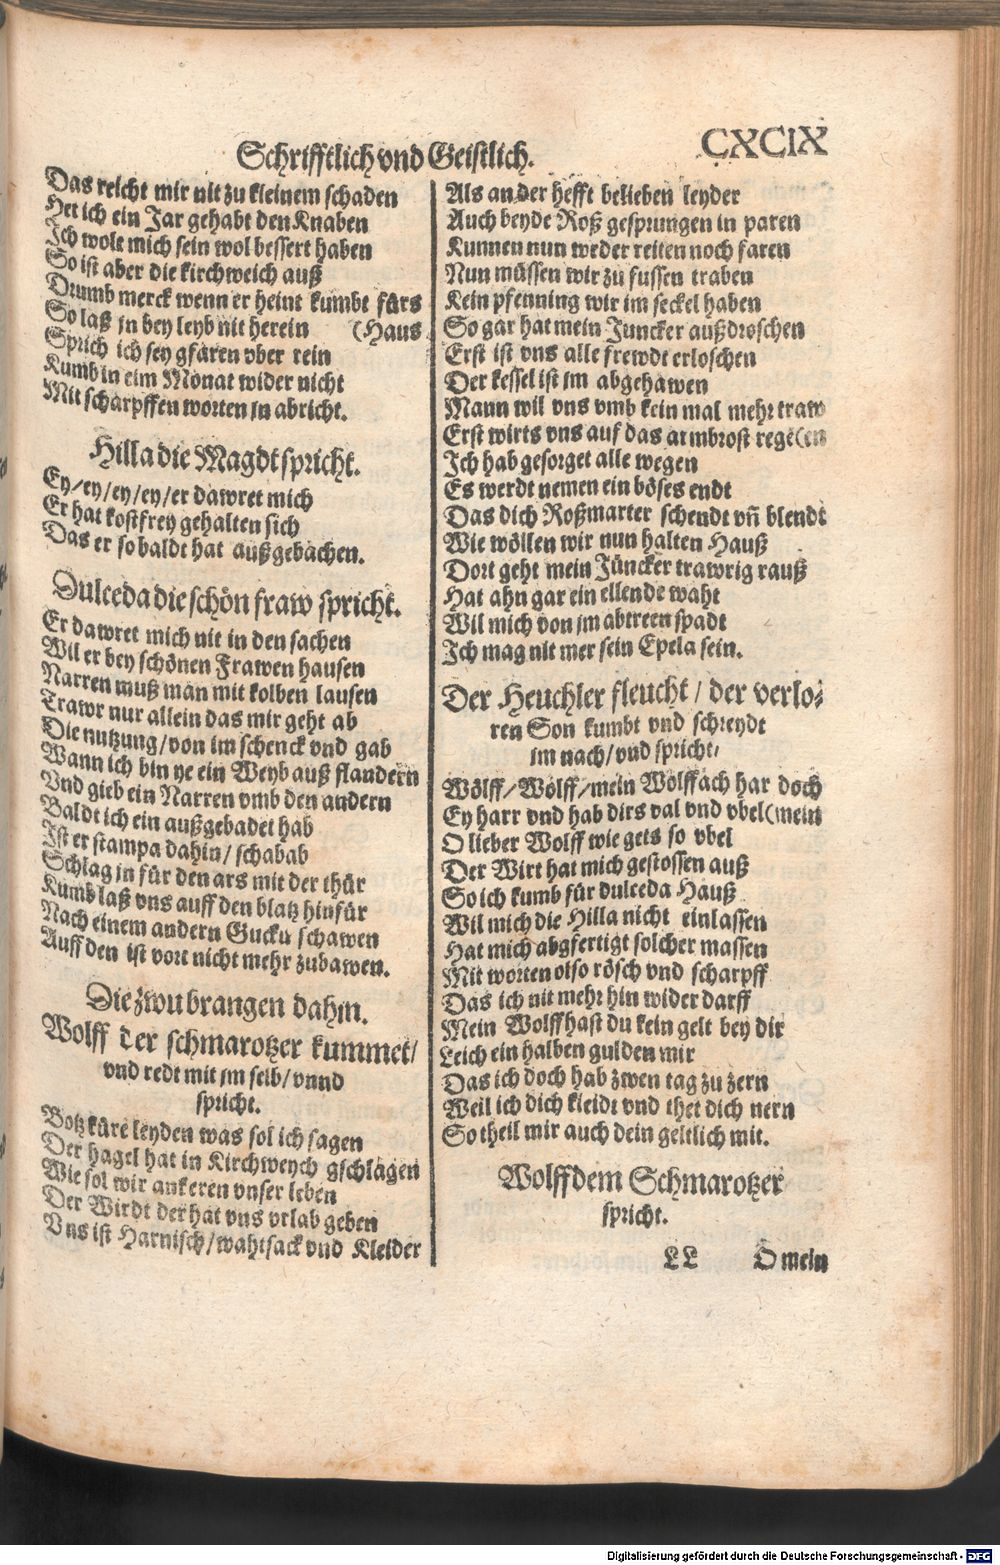 Schrifftlich vnd Geistlich.
CXCIX
Das reicht mir nit zu kleinem schaden
Het ich ein Jar gehabt den Knaben
Ich wolt mich sein wol bessert haben
So ist aber die kirchweich auß
Drumb merck wenn er heint kumbt fürs
So laß jn bey leyb nit herein (Haus
Sprich ich sey gfaren vber rein
Kumb in eim Monat wider nicht
Mit scharpffen worten jn abricht.
Hilla die Magdt spricht.
Ey/ey/ey/ey/er dawret mich
Er hat kostfrey gehalten sich
Das er so baldt hat außgebachen.
Dulceda die schön fraw spricht.
Er dawret mich nit in den sachen
Wil er bey schönen Frawen hausen
Narren muß man mit kolben lausen
Trawr nur allein das mir geht ab
Die nutzung/von im schenck vnd gab
Wann ich bin ye ein Weyb auß flandern
Vnd gieb ein Narren vmb den andern
Baldt ich ein außgebadet hab
Ist er stampa dahin/schabab
Schlag jn für den ars mit der thür
Kumb laß vns auff den blatz hinfür
Nach einem andern Gucku schawen
Auff den ist vort nicht mehr zubawen.
Die zwu brangen dahin.
Wolff der schmarotzer kummet/
vnd redt mit jm selb/vnnd
spricht.
Botz küre leyden was sol ich sagen
Der hagel hat in Kirchweych gschlagen
Wie sol wir ankeren vnser leben
Der Wirdt der hat vns vrlab geben
Vns ist Harnisch/wahtsack vnd Kleider
Als an der hefft belieben leyder
Auch beyde Roß gesprungen in paren
Kunnen nun weder reiten noch faren
Nun müssen wir zu fussen traben
Kein pfenning wir im seckel haben
So gar hat mein Juncker außdroschen
Erst ist vns alle frewdt erloschen
Der kessel ist jm abgehawen
Mann wil vns vmb kein mal mehr traw
Erst wirts vns auf das armbrost rege(en
Ich hab gesorget alle wegen
Es werdt nemen ein böses endt
Das dich Roßmarter schendt vñ blendt
Wie wöllen wir nun halten Hauß
Dort geht mein Jüncker trawrig rauß
Hat ahn gar ein ellende waht
Wil mich von jm abtreen spadt
Ich mag nit mer sein Epela sein.
Der Heuchler fleucht/der verlo⸗
ren Son kumbt vnd schreydt
jm nach/vnd spricht/
Wölff/Wölff/mein Wolff ach har doch
Ey harr vnd hab dirs val vnd vbel(mein
O lieber Wolff wie gets so vbel
Der Wirt hat mich gestossen auß
So ich kumb für dulceda Hauß
Wil mich die Hilla nicht einlassen
Hat mich abgfertigt solcher massen
Mit worten olso rösch vnd scharpff
Das ich nit mehr hin wider darff
Mein Wolff hast du kein gelt bey dir
Leich ein halben gulden mir
Das ich doch hab zwen tag zu zern
Weil ich dich kleidt vnd thet dich nern
So theil mir auch dein geltlich mit.
Wolff dem Schmarotzer
spricht.
LL O mein
Digitalisierung gefördert durch die Deutsche Forschungsgemeinschaft - DFG